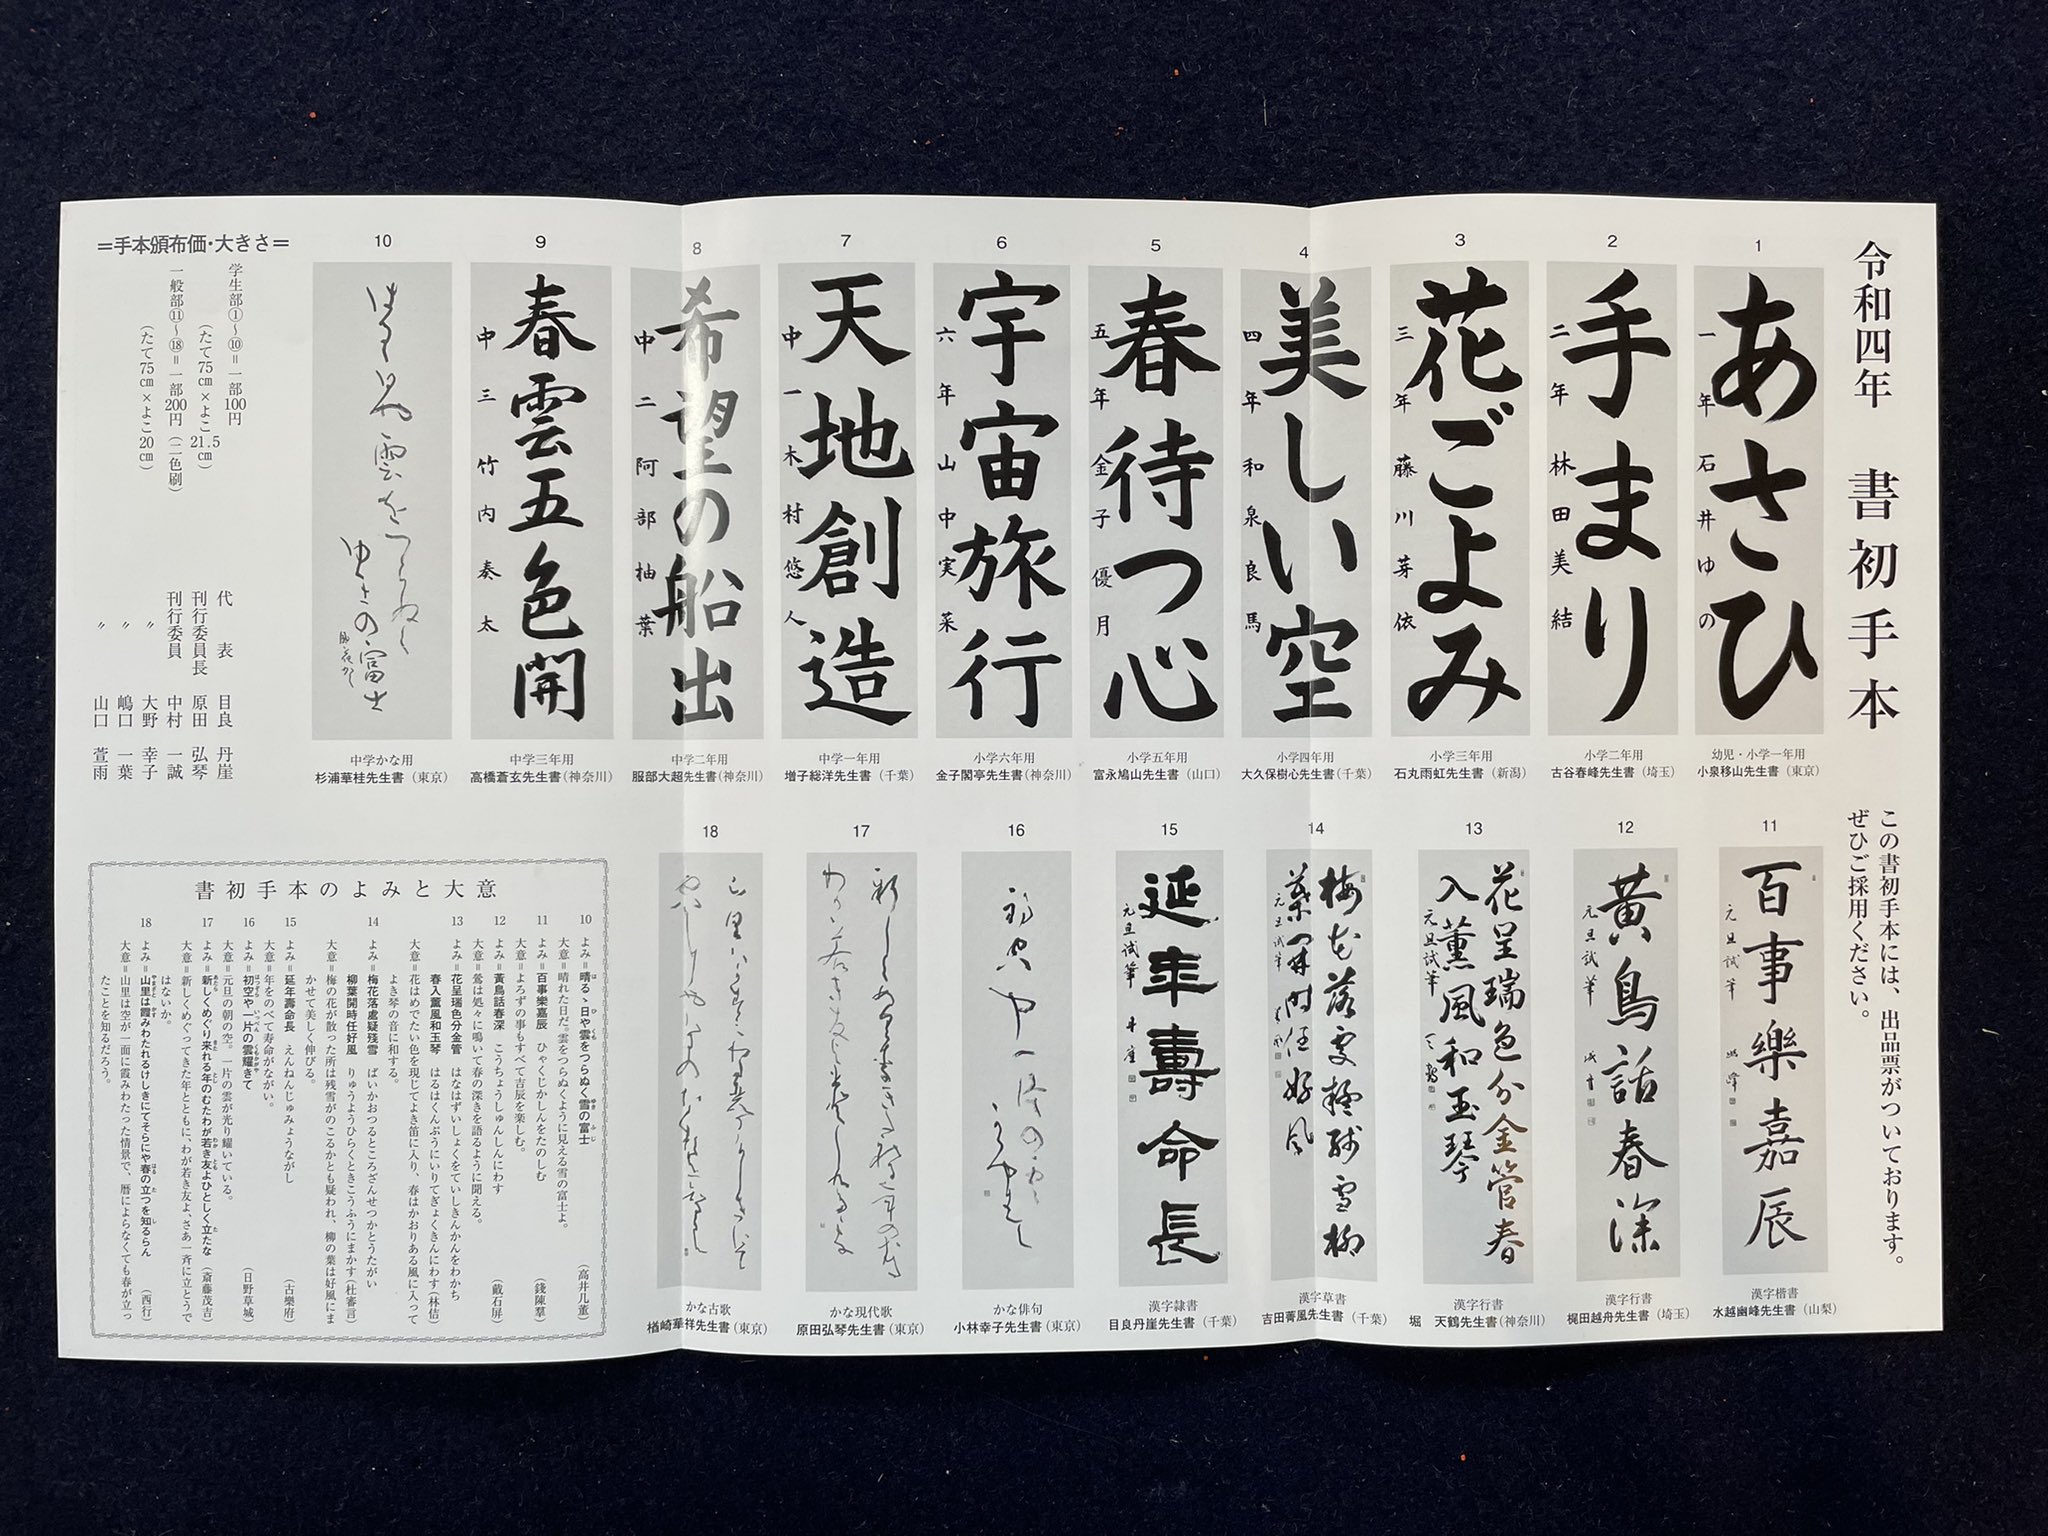 令和四年 書初手本
この書初手本には、出品票がついております。
ぜひご採用ください。
1
あさひ
一年 石井ゆの
幼児・小学一年用
小泉移山先生書(東京)
2
手まり
二年 林田美結
小学二年用
古谷春峰先生書(埼玉)
3
花ごよみ
三年 藤川芽依
小学三年用
石丸雨虹先生書(新潟)
4
美しい空
四年 和泉良馬
小学四年用
大久保樹心先生書(千葉)
5
春待つ心
五年 金子優月
小学五年用
富永鳩山先生書(山口)
6
宇宙旅行
六年 山中実菜
小学六年用
金子閣亭先生書(神奈川)
7
天地創造
中一 木村悠人
中学一年用
増子総洋先生書(千葉)
8
希望の船出
中二 阿部柚葉
中学二年用
服部大超先生書(神奈川)
9
春雲五色開
中三 竹内奏太
中学三年用
高橋蒼玄先生書(神奈川)
10
中学かな用
杉浦華桂先生書(東京)
=手本頒布価・大きさ=
学生部①〜⑩=一部100円
(たて75cm×よこ21.5cm)
一般部⑪〜⑱=一部200円(二色刷)
(たて75cm×よこ20cm)
代表 目良丹崖
刊行委員長 原田弘琴
刊行委員 中村一誠
〃 大野幸子
〃 嶋口一葉
〃 山口萱雨
11
百事樂嘉辰
元旦試筆
漢字楷書
水越幽峰先生書(山梨)
12
黄鳥話春深
元旦試筆
漢字行書
梶田越舟先生書(埼玉)
13
花呈瑞色分金管春
入薫風和玉琴
元旦試筆
漢字行書
堀 天鶴先生書(神奈川)
14
梅花落處疑殘雪柳
葉開時任好風
元旦試筆
漢字草書
吉田菁風先生書(千葉)
15
延年壽命長
元旦試筆 丹崖
漢字隷書
目良丹崖先生書(千葉)
16
かな俳句
小林幸子先生書(東京)
17
かな現代歌
原田弘琴先生書(東京)
18
かな古歌
楢崎華祥先生書(東京)
書初手本のよみと大意
10 よみ=晴るゝ日や雲をつらぬく雪の富士
大意=晴れた日だ。雲をつらぬくように見える雪の富士よ。 (高井几董)
11 よみ=百事樂嘉辰 ひゃくじかしんをたのしむ
大意=よろずの事もすべて吉辰を楽しむ。 (錢陳羣)
12 よみ=黃鳥話春深 こうちょうしゅんしんにわす
大意=鶯は処々に鳴いて春の深きを語るように聞える。 (戴石屏)
13 よみ=花呈瑞色分金管 はなはずいしょくをていしきんかんをわかち
春入薫風和玉琴 はるはくんぷうにいりてぎょくきんにわす(林佶)
大意=花はめでたい色を現じてよき笛に入り、春はかおりある風に入って
よき琴の音に和する。
14 よみ=梅花落處疑殘雪 ばいかおつるところざんせつかとうたがい
柳葉開時任好風 りゅうようひらくときこうふうにまかす(杜審言)
大意=梅の花が散った所は残雪がのこるかとも疑われ、柳の葉は好風にま
かせて美しく伸びる。
15 よみ=延年壽命長 えんねんじゅみょうながし
大意=年をのべて寿命がながい。 (古樂府)
16 よみ=初空や一片の雲耀きて
大意=元旦の朝の空。一片の雲が光り耀いている。 (日野草城)
17 よみ=新しくめぐり来れる年のむたわが若き友よひとしく立たな
大意=新しくめぐってきた年とともに、わが若き友よ、さあ一斉に立とうで
はないか。 (斎藤茂吉)
18 よみ=山里は霞みわたれるけしきにてそらにや春の立つを知るらん
大意=山里は空が一面に霞みわたった情景で、暦によらなくても春が立っ
たことを知るだろう。 (西行)